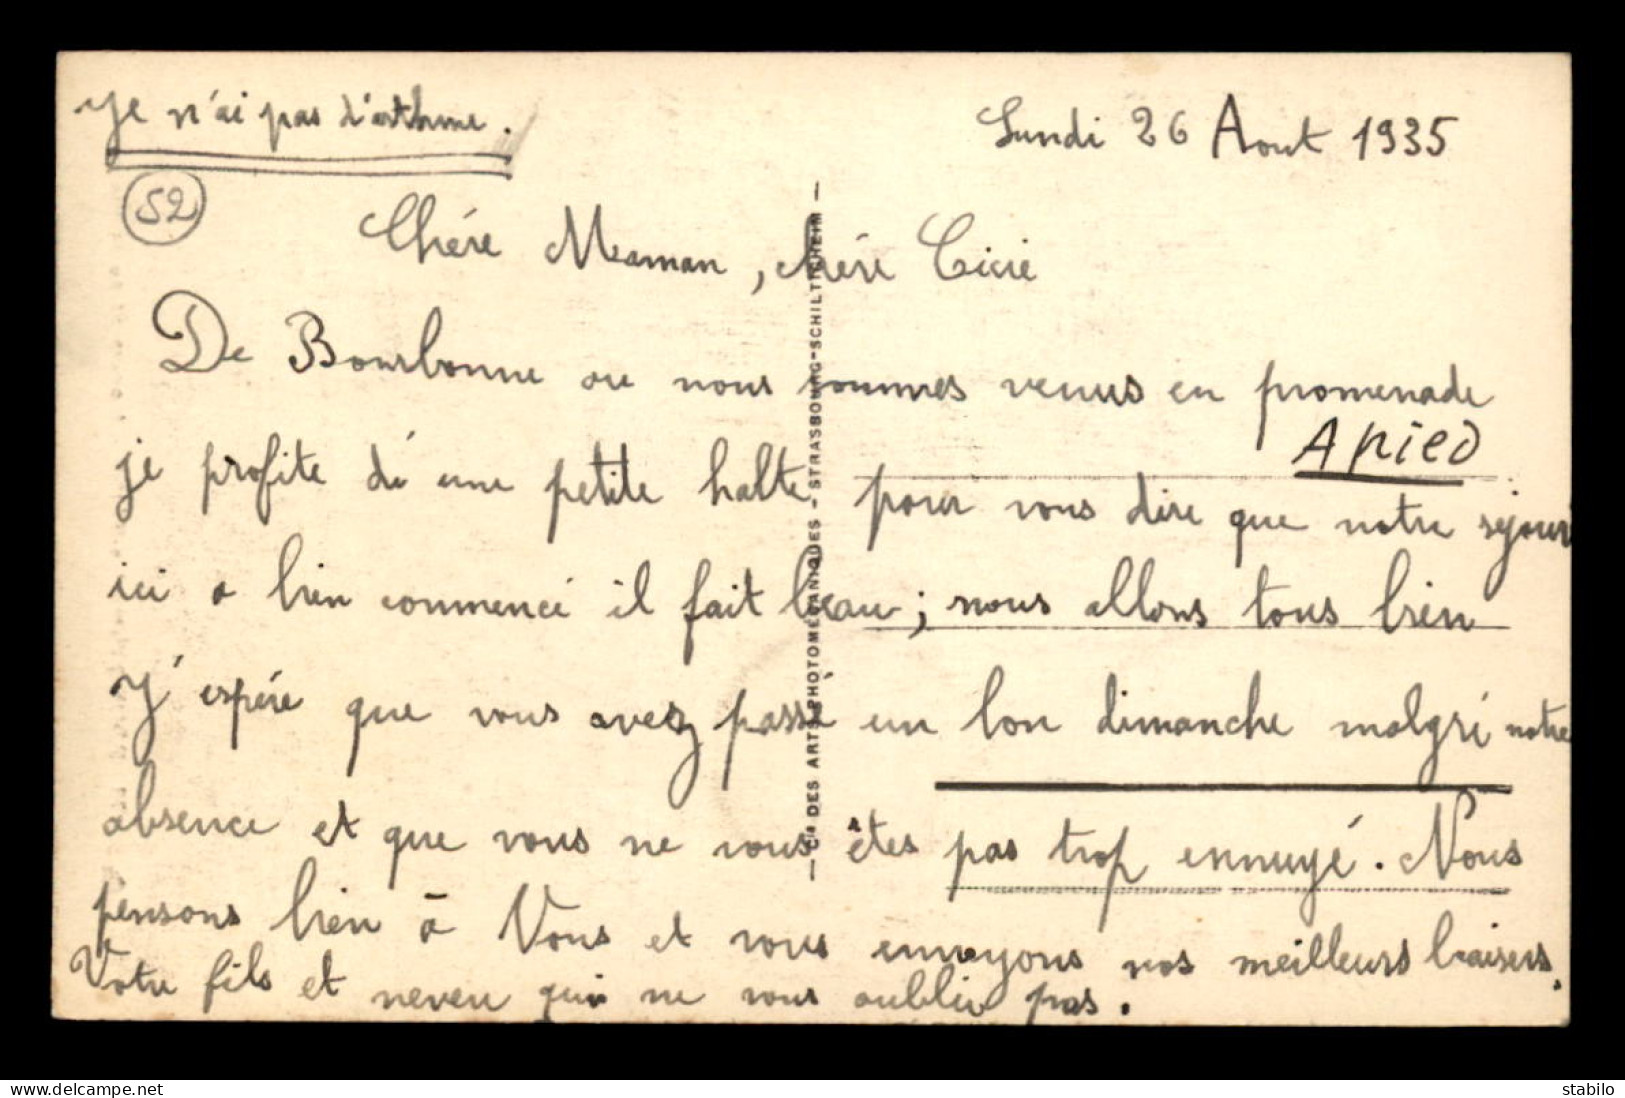 Je n'ai pas d'asthme.
Lundi 26 Aout 1935
52
Chére Maman, chére Cicie
De Bourbonne ou nous sommes venus en promenade
A PIED
je profite d'une petite halte pour vous dire que notre sejour
ici a bien commencé il fait beau; nous allons tous bien
J'espére que vous avez passé un bon dimanche malgré notre
absence et que vous ne vous êtes pas trop ennuyé. Nous
pensons bien à Vous et vous envoyons nos meilleurs baisers.
Votre fils et neveu qui ne vous oublie pas.
— Cie DES ARTS PHOTOMECANIQUES - STRASBOURG-SCHILTIGHEIM —
www.delcampe.net
stabilo